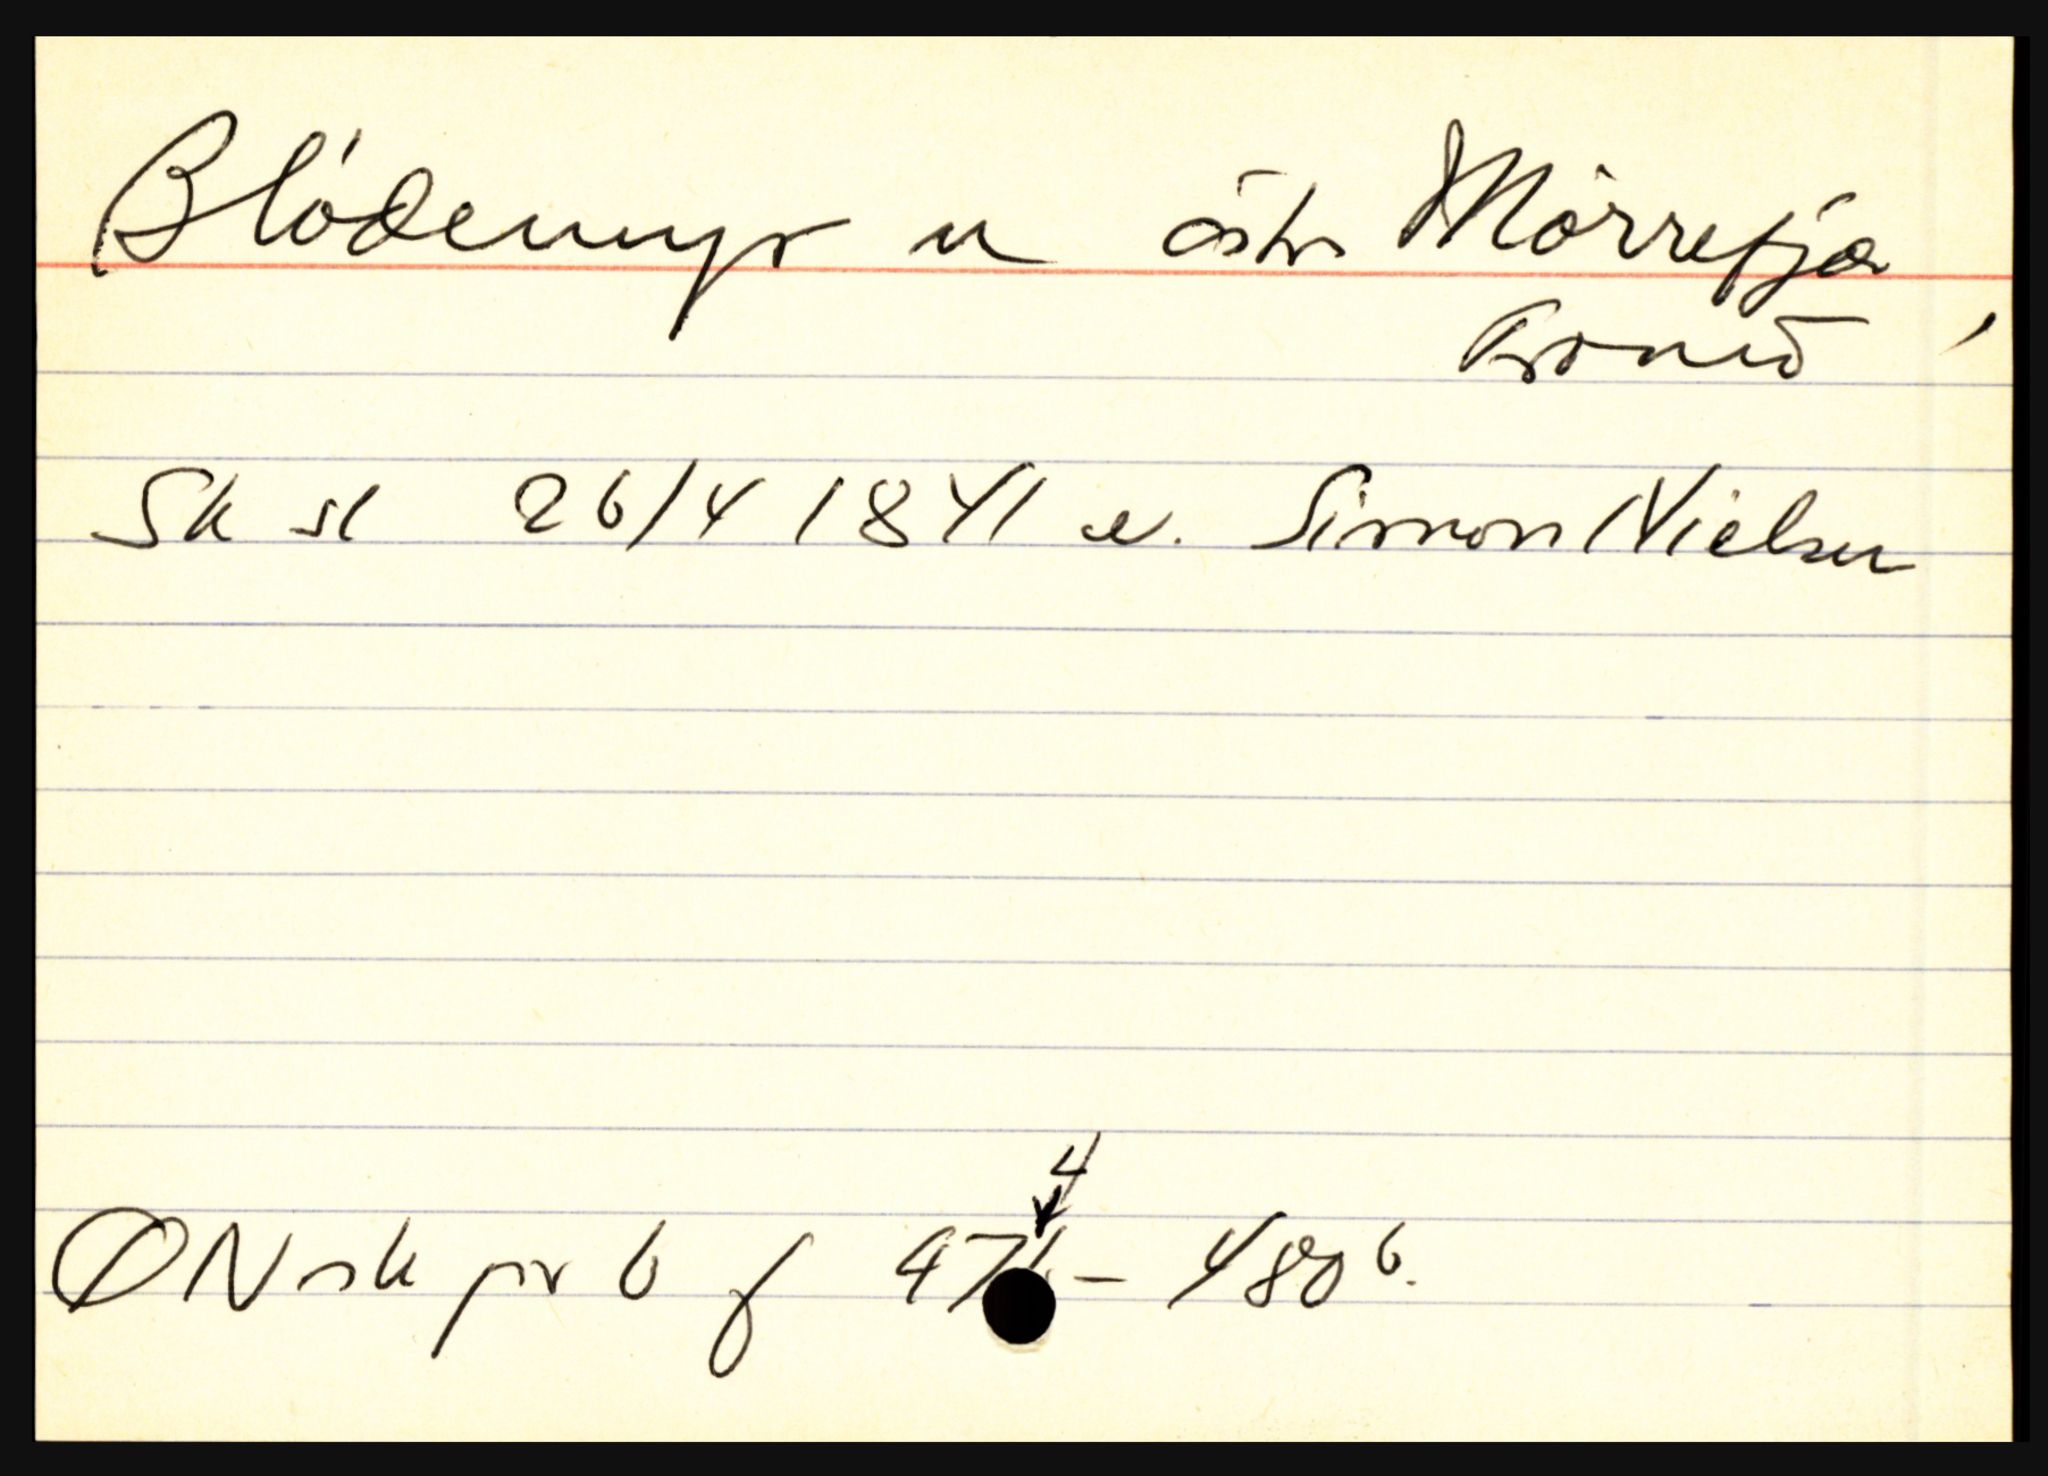 Blódemyr u östr Mörrefjær,
Fromd
Sk sl 26/4 1841 e. Simon Nielsen
4
ØN sk pr 6 f 47 – 480 b.